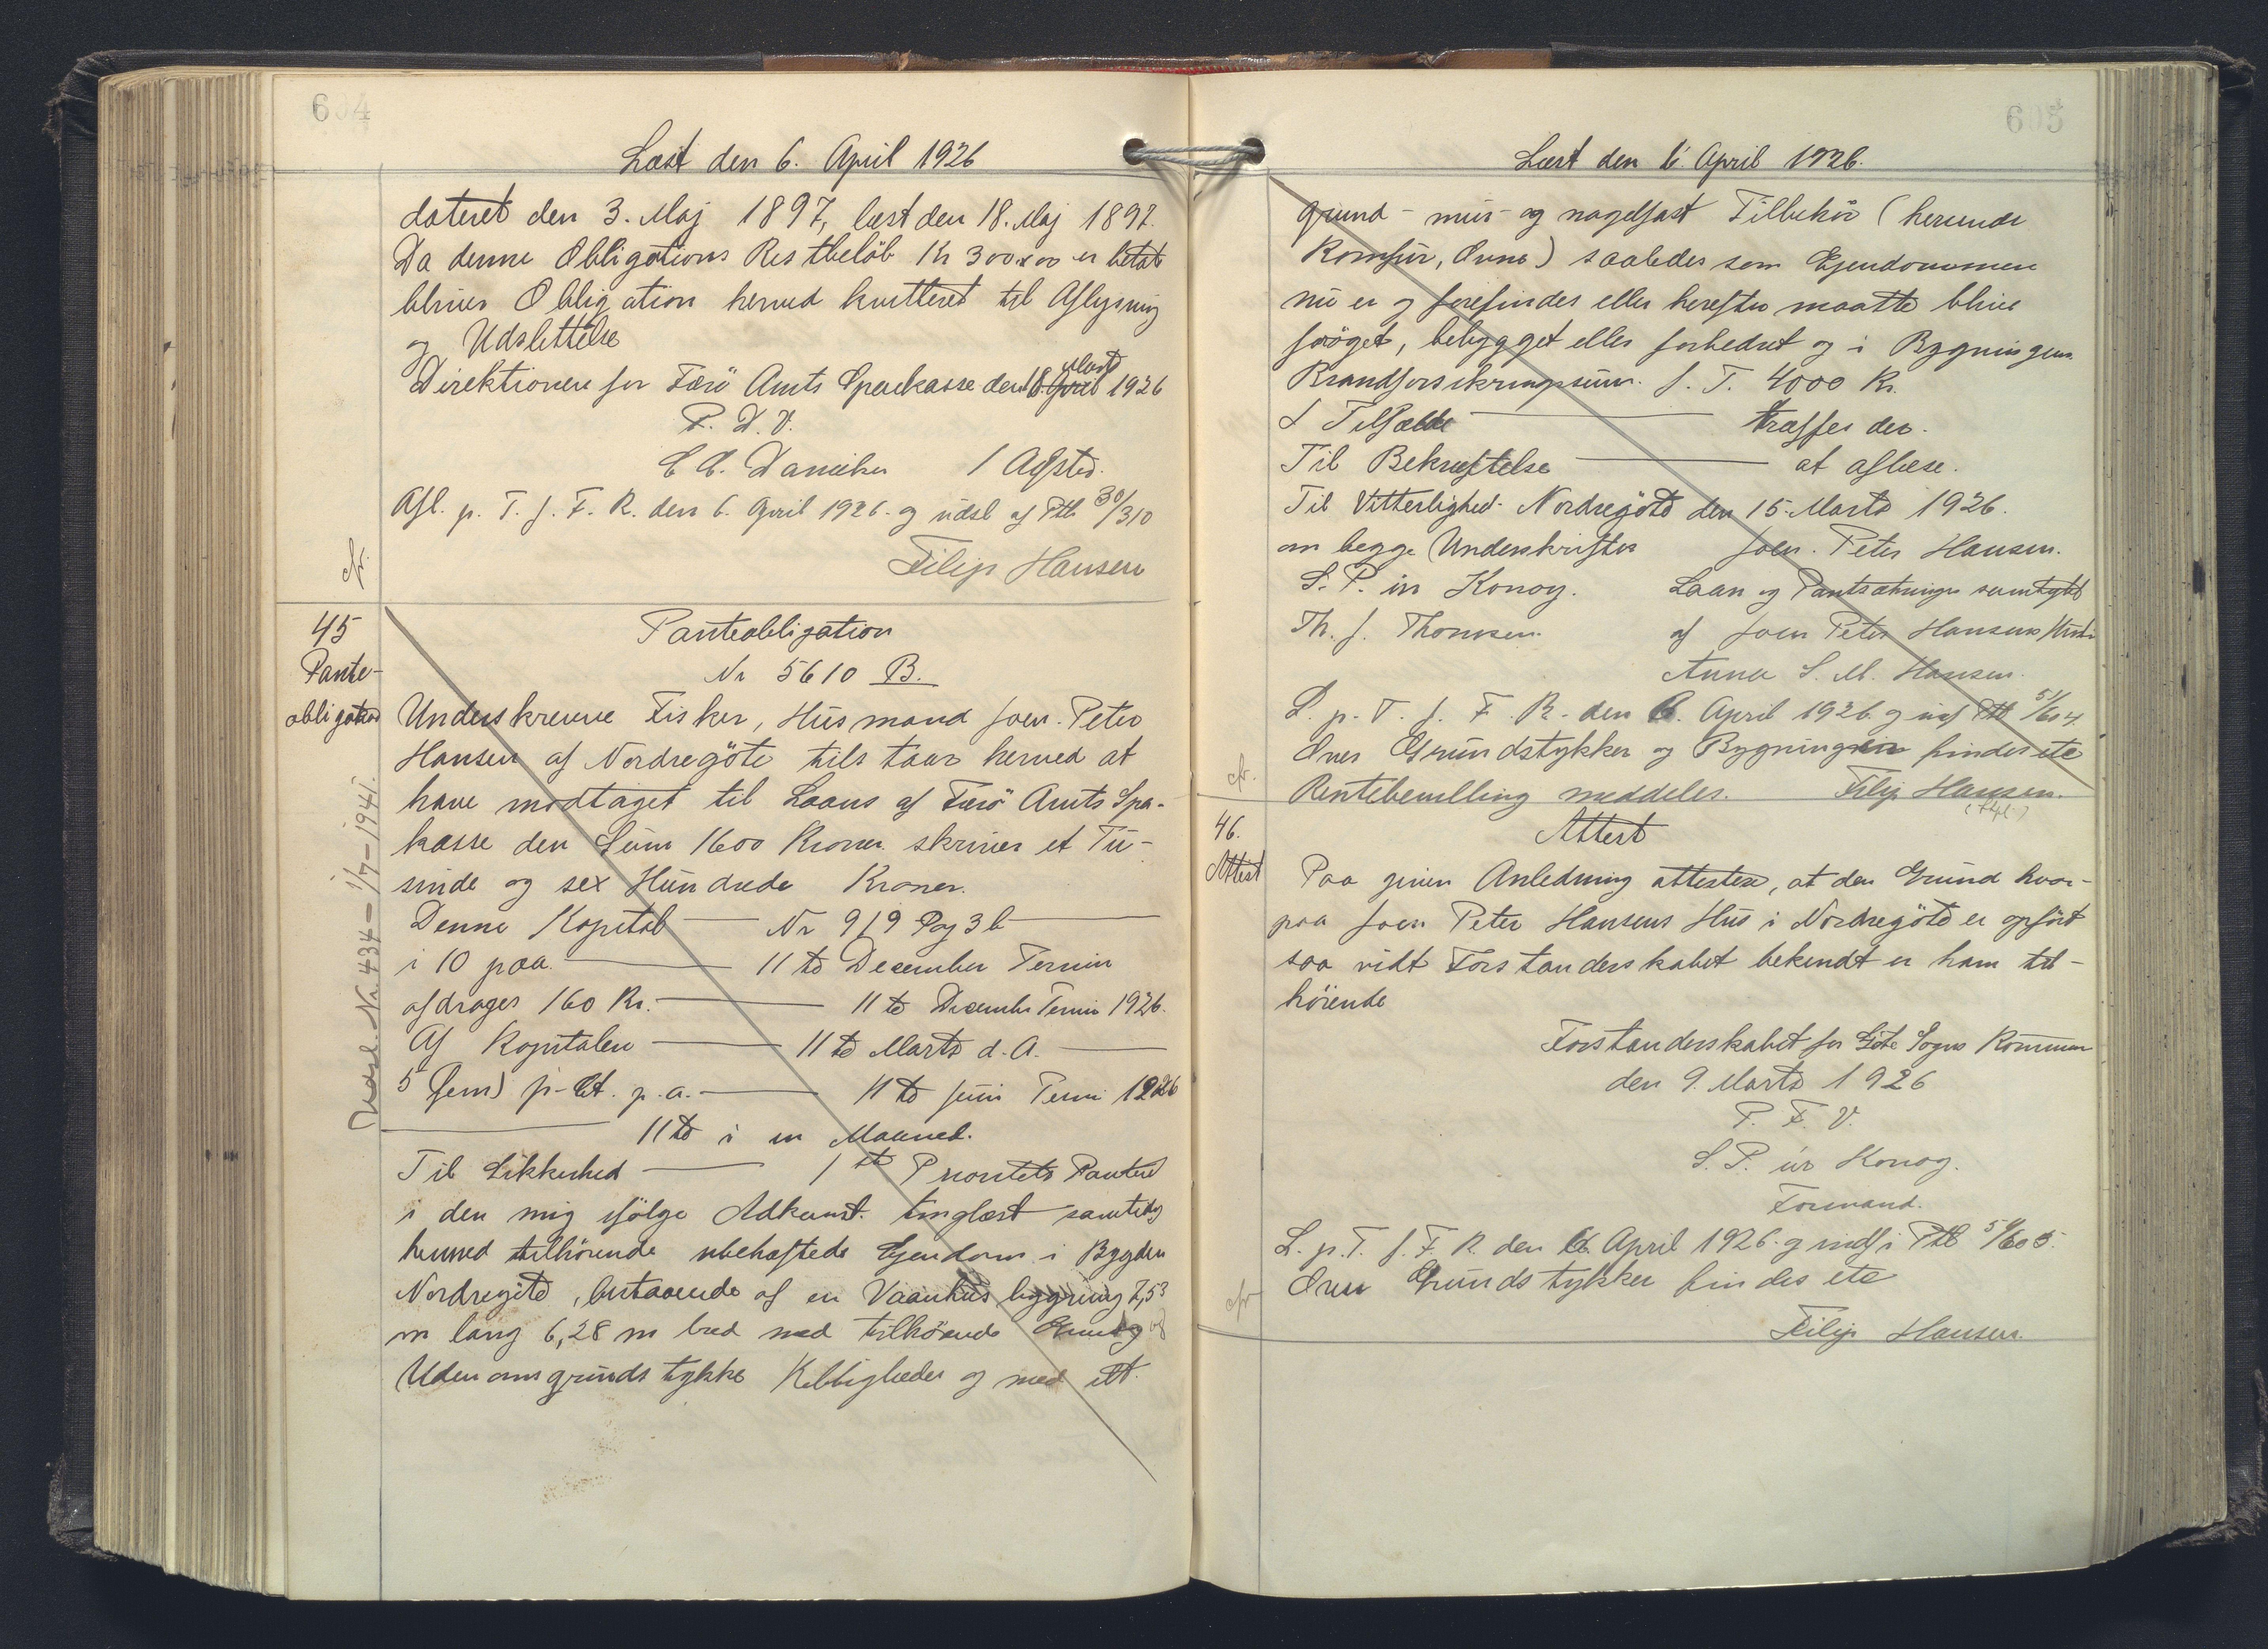 604
Læst den 6. April 1926
dateret den 3. Maj 1897, læst den 18. Maj 1897.
Da denne Obligations Restbeløb Kr 300x00 er betalt
bliver Obligation herved kvitteret til Aflysning
og Udslettelse
Direktionen for Færö Amts Sparekasse den 18. April Marts 1926
P. D. V.
C. C. Danielsen / Agsted.
Afl. p. T. f. F. R. den 6. April 1926. og udsl af Ptb 30/310
cfr.
Filip Hansen
45
Pante-
obligation
Udsl. Nr. 434 = 1/7 - 1941.
Panteobligation
Nr 5610 B.
Underskrevne Fisker, Husmand Joen. Peter
Hansen af Nordregöte tilstaar herved at
have modtaget til Laans af Færö Amts Spa-
kasse den Sum 1600 Kroner skriver et Tu-
sinde og sex Hundrede Kroner.
Denne Kapital — Nr 919 Pag 3 b —
i 10 paa. — 11 te December Termin
afdrages 160 Kr. — 11 te December Termin 1926.
Af Kapitalen — 11 te Marts d. A. —
5 (fem) p-Ct. p. a. — 11 te Juni Termi 1926
— 11 te i en Maaned.
Til Sikkerhed — 1 ste Prioritets Panteret
i den mig ifölge Adkomst. tinglæst samtidig
hermed tilhörende ubehæftede Ejendom i Bygden
Nordregöte, bestaaende af en Vaanhusbygning 7,53
m lang 6,28 m bred med tilhörende Grund og
Udenomsgrundstykke Herligheder og med alt.
605
Læst den 6. April 1926.
grund - mur- og nagelfast Tilbehör (herunde
Komfur, Ovne) saaledes som Ejendommen
nu er og forefindes eller herefter maatte blive
foröget, bebygget eller forbedret og i Bygningens
Brandforsikringssum. f. T. 4000 Kr.
I Tilfælde — træffes der.
Til Bekræftelse — at aflæse.
Til Vitterlighed. Nordregöte den 15. Marts 1926.
om begge Underskrifter Joen. Peter Hansen.
S. P. úr Konoy. Laan og Pantsætningen samtykt
Th. J. Thomsen. af Joen Peter Hansens Hustr
Anna S. M. Hansen.
L. p. T. f. F. R. den 6. April 1926. og indf Ptb 51/604.
Over Grundstykker og Bygningen findes etc
cfr.
Rentebevilling meddeles. Filip Hansen.
46.
Attest
Attest
Paa given Anledning attesteres, at den Grund hvor-
paa Joen Peter Hansens Hus i Nordregöte er opfört
saa vidt Forstanderskabet bekendt er ham til-
hörende
Forstanderskabet for Göte Sogns Kommun
den 9. Marts 1926
P. F. V.
S. P. úr Konoy.
Formand.
L. p. T. f. F. R. den 6. April 1926. og indf i Ptb 51/605.
cfr
Over Grundstykker findes etc
Filip Hansen.